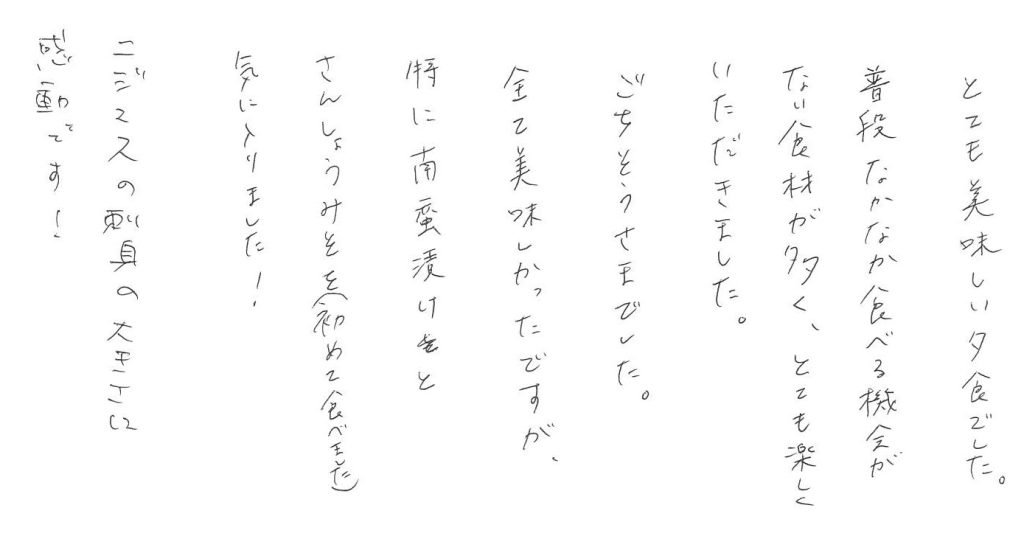 とても美味しい夕食でした。
普段なかなか食べる機会が
ない食材が多く、とても楽しく
いただきました。
ごちそうさまでした。
全て美味しかったですが、
特に南蛮漬けと
さんしょうみそを(初めて食べました)
気に入りました！
ニジマスの刺身の大きさに
感動です！